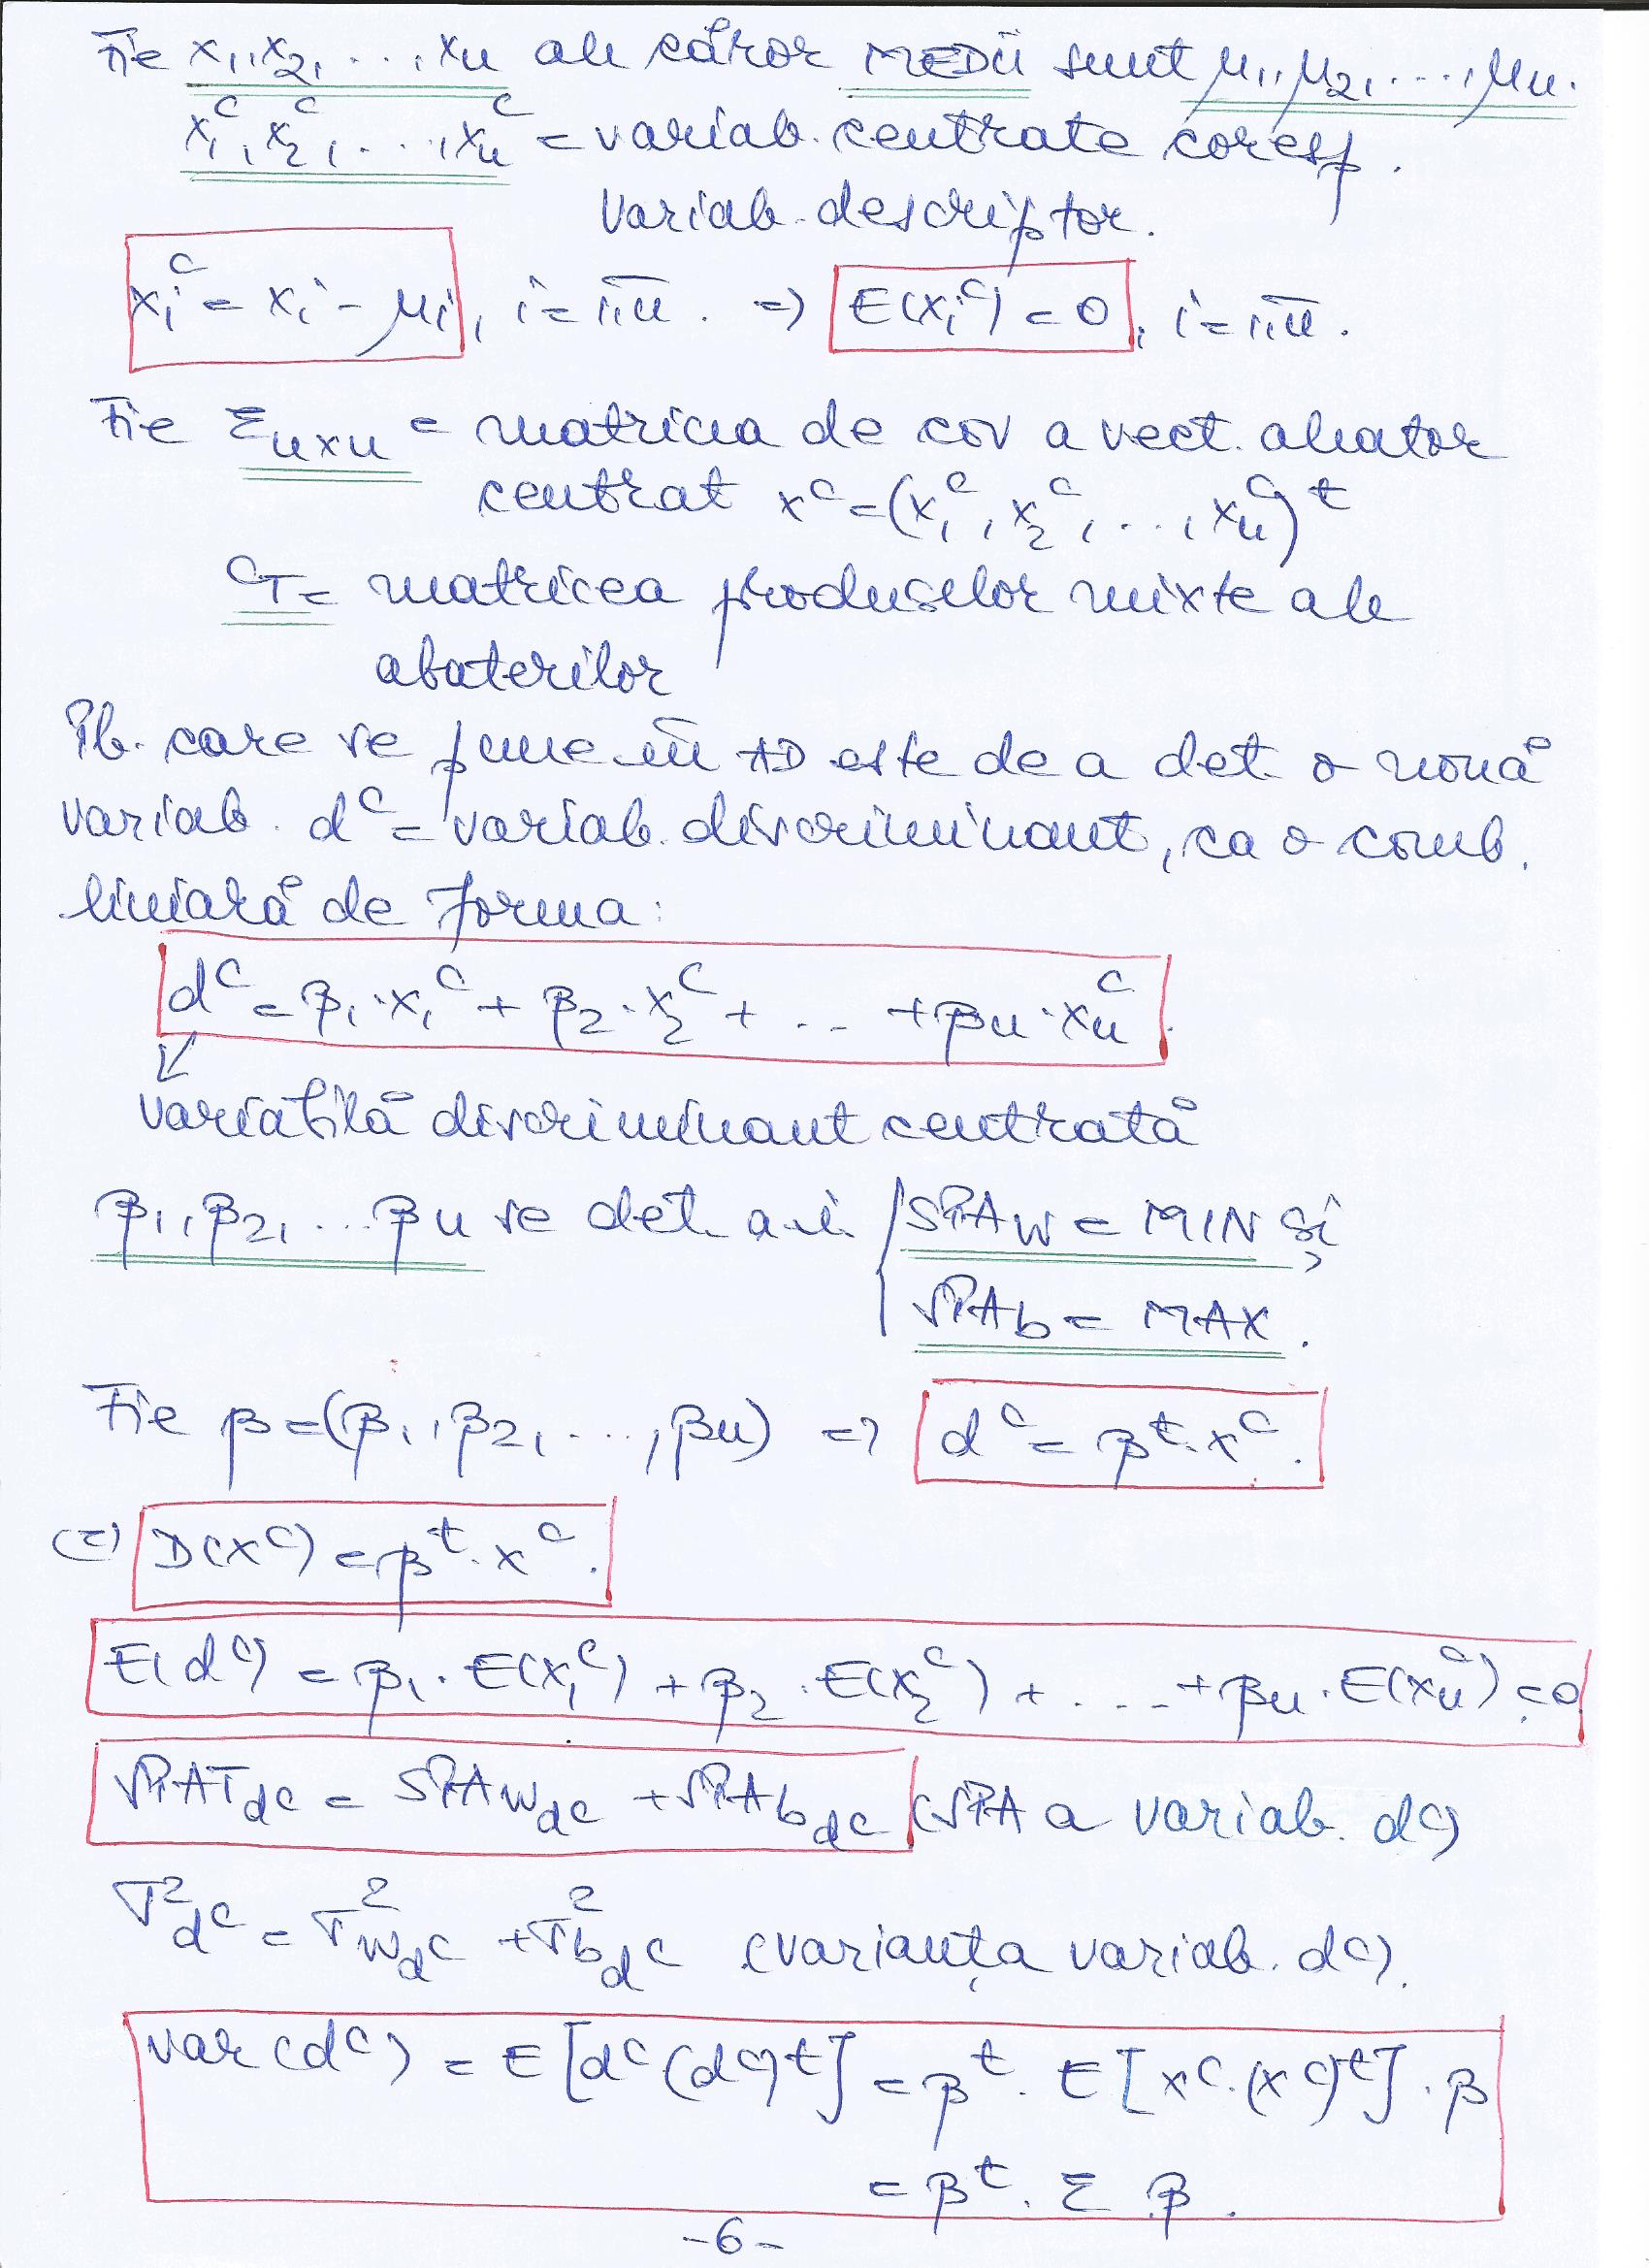 Fie x1, x2, ..., xn ale căror MEDII sunt μ1, μ2, ..., μn.
x1^c, x2^c, ..., xn^c = variab. centrate coresp.
variab. descriptor.
xi^c = xi - μi, i=1,n. => E(xi^c) = 0, i=1,n.
Fie Σnxn = matricea de cov a vect. aleator
centrat x^c = (x1^c, x2^c, ..., xn^c)^t
CT = matricea produselor mixte ale
abaterilor
Pb. care se pune în AD este de a det. o nouă
variab. d^c = variab. discriminant, ca o comb.
liniară de forma:
d^c = β1·x1^c + β2·x2^c + ... + βn·xn^c.
variabilă discriminant centrată
β1, β2, ... βn se det. a.î. { SPAw = MIN și
SPAb = MAX.
Fie β = (β1, β2, ..., βn) => d^c = β^t·x^c.
(=) D(x^c) = β^t·x^c.
E(d^c) = β1·E(x1^c) + β2·E(x2^c) + ... + βn·E(xn^c) = 0
SPATdc = SPAwdc + SPAbdc (SPA a variab. d^c)
σ²dc = σ²wdc + σ²bdc (varianța variab. d^c).
var(d^c) = E[d^c(d^c)^t] = β^t·E[x^c·(x^c)^t]·β
= β^t·Σ·β.
-6-